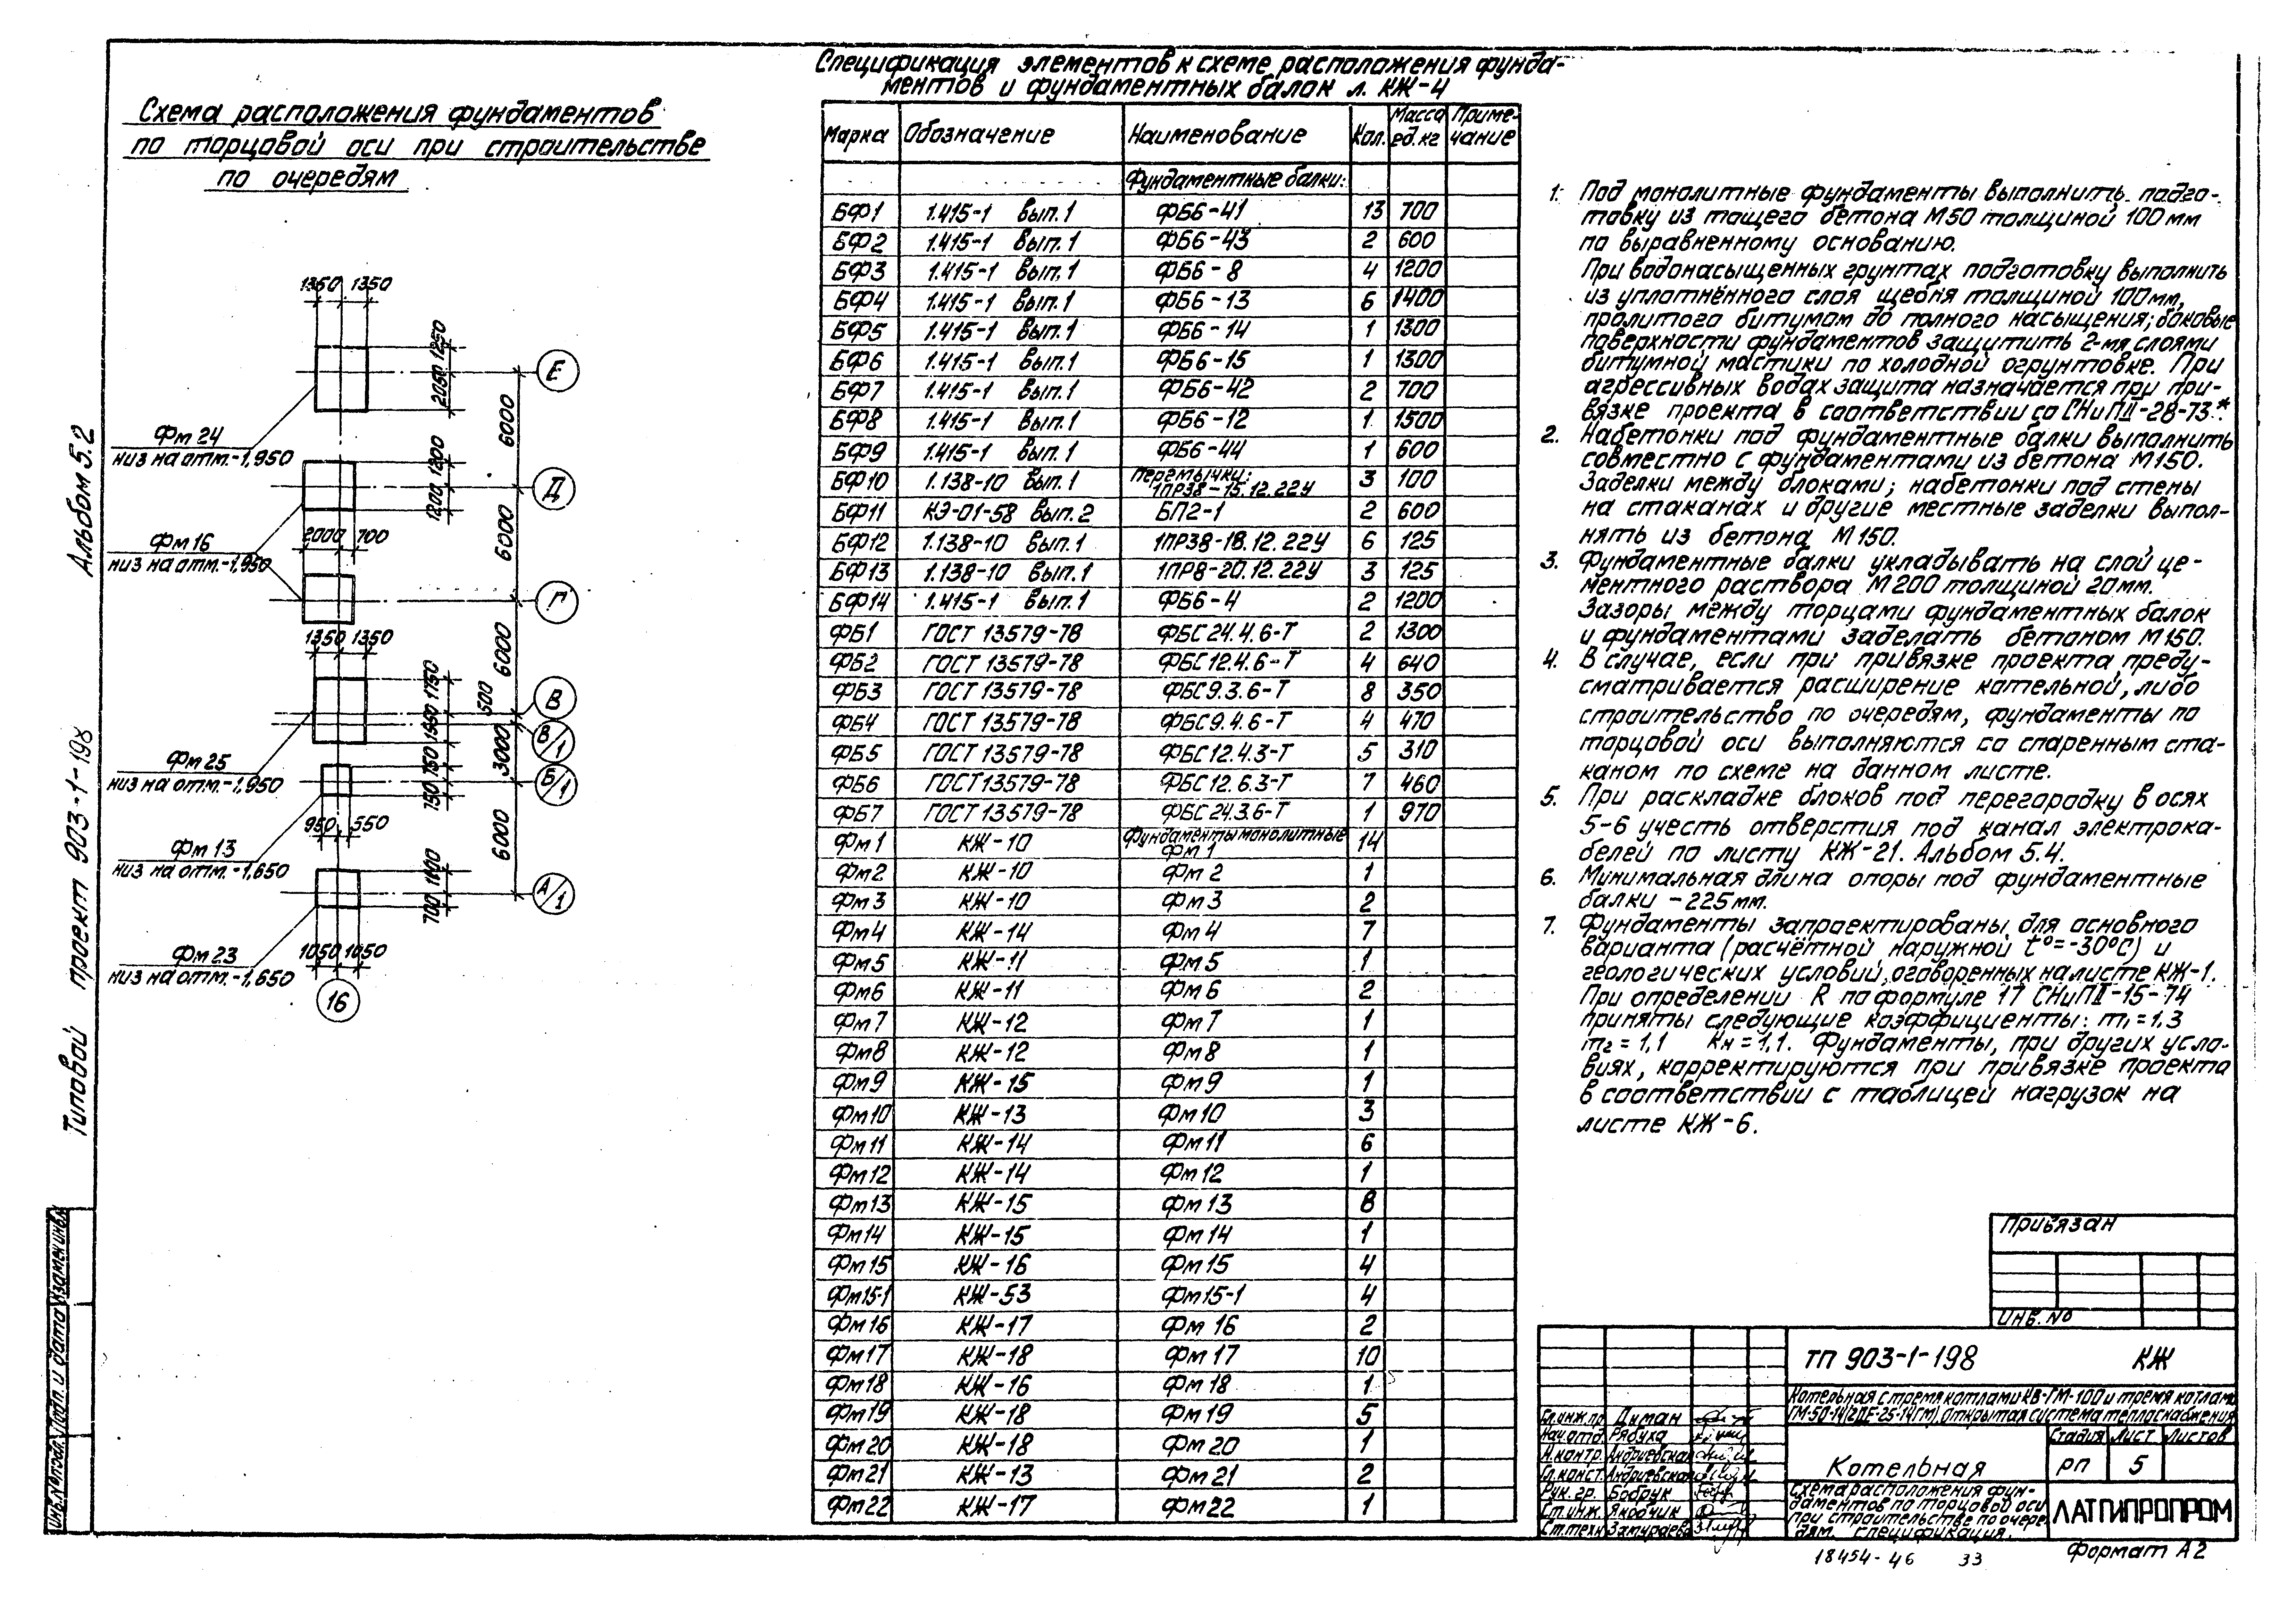 Схема расположения фундаментов
по торцовой оси при строительстве
по очередям
1350 1350
1250
2050
Е
6000
Фм 24
низ на отм.-1,950
1200
1200
Д
6000
Фм 16
низ на отм.-1,950
2000 700
Г
1350 1350
6000
1750
500
В
1550
В/1
3000
Фм 25
низ на отм.-1,950
750
750
Б/1
950 550
6000
Фм 13
низ на отм.-1,650
1100
700
А/1
Фм 23
низ на отм.-1,650
1050 1050
16
Альбом 5.2
Типовой проект 903-1-198
Инв.№подл. Подп. и дата Взамен инв.№
Спецификация элементов к схеме расположения фунда-
ментов и фундаментных балок л. КЖ-4
Марка Обозначение Наименование Кол. Масса ед.кг Приме-чание
Фундаментные балки:
БФ1 1.415-1 вып.1 ФБ6-41 13 700
БФ2 1.415-1 вып.1 ФБ6-43 2 600
БФ3 1.415-1 вып.1 ФБ6-8 4 1200
БФ4 1.415-1 вып.1 ФБ6-13 6 1400
БФ5 1.415-1 вып.1 ФБ6-14 1 1300
БФ6 1.415-1 вып.1 ФБ6-15 1 1300
БФ7 1.415-1 вып.1 ФБ6-42 2 700
БФ8 1.415-1 вып.1 ФБ6-12 1 1500
БФ9 1.415-1 вып.1 ФБ6-44 1 600
Перемычки:
БФ10 1.138-10 вып.1 1ПР38-15.12.22У 3 100
БФ11 КЭ-01-58 вып.2 БП2-1 2 600
БФ12 1.138-10 вып.1 1ПР38-18.12.22У 6 125
БФ13 1.138-10 вып.1 1ПР8-20.12.22У 3 125
БФ14 1.415-1 вып.1 ФБ6-4 2 1200
ФБ1 ГОСТ 13579-78 ФБС24.4.6-Т 2 1300
ФБ2 ГОСТ 13579-78 ФБС12.4.6-Т 4 640
ФБ3 ГОСТ 13579-78 ФБС9.3.6-Т 8 350
ФБ4 ГОСТ 13579-78 ФБС9.4.6-Т 4 470
ФБ5 ГОСТ 13579-78 ФБС12.4.3-Т 5 310
ФБ6 ГОСТ 13579-78 ФБС12.6.3-Т 7 460
ФБ7 ГОСТ 13579-78 ФБС24.3.6-Т 1 970
Фундаменты монолитные
Фм1 КЖ-10 Фм 1 14
Фм2 КЖ-10 Фм 2 1
Фм3 КЖ-10 Фм 3 2
Фм4 КЖ-14 Фм 4 7
Фм5 КЖ-11 Фм 5 1
Фм6 КЖ-11 Фм 6 2
Фм7 КЖ-12 Фм 7 1
Фм8 КЖ-12 Фм 8 1
Фм9 КЖ-15 Фм 9 1
Фм10 КЖ-13 Фм 10 3
Фм11 КЖ-14 Фм 11 6
Фм12 КЖ-14 Фм 12 1
Фм13 КЖ-15 Фм 13 8
Фм14 КЖ-15 Фм 14 1
Фм15 КЖ-16 Фм 15 4
Фм15-1 КЖ-53 Фм 15-1 4
Фм16 КЖ-17 Фм 16 2
Фм17 КЖ-18 Фм 17 10
Фм18 КЖ-16 Фм 18 1
Фм19 КЖ-18 Фм 19 5
Фм20 КЖ-18 Фм 20 1
Фм21 КЖ-13 Фм 21 2
Фм22 КЖ-17 Фм 22 1
1. Под монолитные фундаменты выполнить подго-
товку из тощего бетона М50 толщиной 100 мм
по выравненному основанию.
При водонасыщенных грунтах подготовку выполнить
из уплотнённого слоя щебня толщиной 100мм,
пролитого битумом до полного насыщения; боковые
поверхности фундаментов защитить 2-мя слоями
битумной мастики по холодной огрунтовке. При
агрессивных водах защита назначается при при-
вязке проекта в соответствии со СНиПII-28-73.*
2. Набетонки под фундаментные балки выполнить
совместно с фундаментами из бетона М150.
Заделки между блоками; набетонки под стены
на стаканах и другие местные заделки выпол-
нять из бетона М150.
3. Фундаментные балки укладывать на слой це-
ментного раствора М200 толщиной 20мм.
Зазоры между торцами фундаментных балок
и фундаментами заделать бетоном М150.
4. В случае, если при привязке проекта преду-
сматривается расширение котельной, либо
строительство по очередям, фундаменты по
торцовой оси выполняются со спаренным ста-
каном по схеме на данном листе.
5. При раскладке блоков под перегородку в осях
5-6 учесть отверстия под канал электрока-
белей по листу КЖ-21. Альбом 5.4.
6. Минимальная длина опоры под фундаментные
балки - 225мм.
7. Фундаменты запроектированы для основного
варианта (расчётной наружной t°=-30°С) и
геологических условий, оговоренных на листе КЖ-1.
При определении R по формуле 17 СНиПII-15-74
приняты следующие коэффициенты: m₁=1,3
m₂=1,1 Kн=1,1. Фундаменты, при других усло-
виях, корректируются при привязке проекта
в соответствии с таблицей нагрузок на
листе КЖ-6.
Привязан
Инв. №
ТП 903-1-198 КЖ
Котельная с тремя котлами КВ-ГМ-100 и тремя котлами
ГМ-50-14(2ДЕ-25-14ГМ). Открытая система теплоснабжения
Гл.инж.пр Диман
Нач.отд. Рябуха
Н.контр. Андриевская
Гл.конст. Андриевская
Рук. гр. Бобрук
Ст.инж. Якобчик
Ст.техн Замураева
Котельная
Стадия Лист Листов
РП 5
Схема расположения фун-
даментов по торцовой оси
при строительстве по очере-
дям. Спецификация.
ЛАТГИПРОПРОМ
18454-46 33
Формат А2